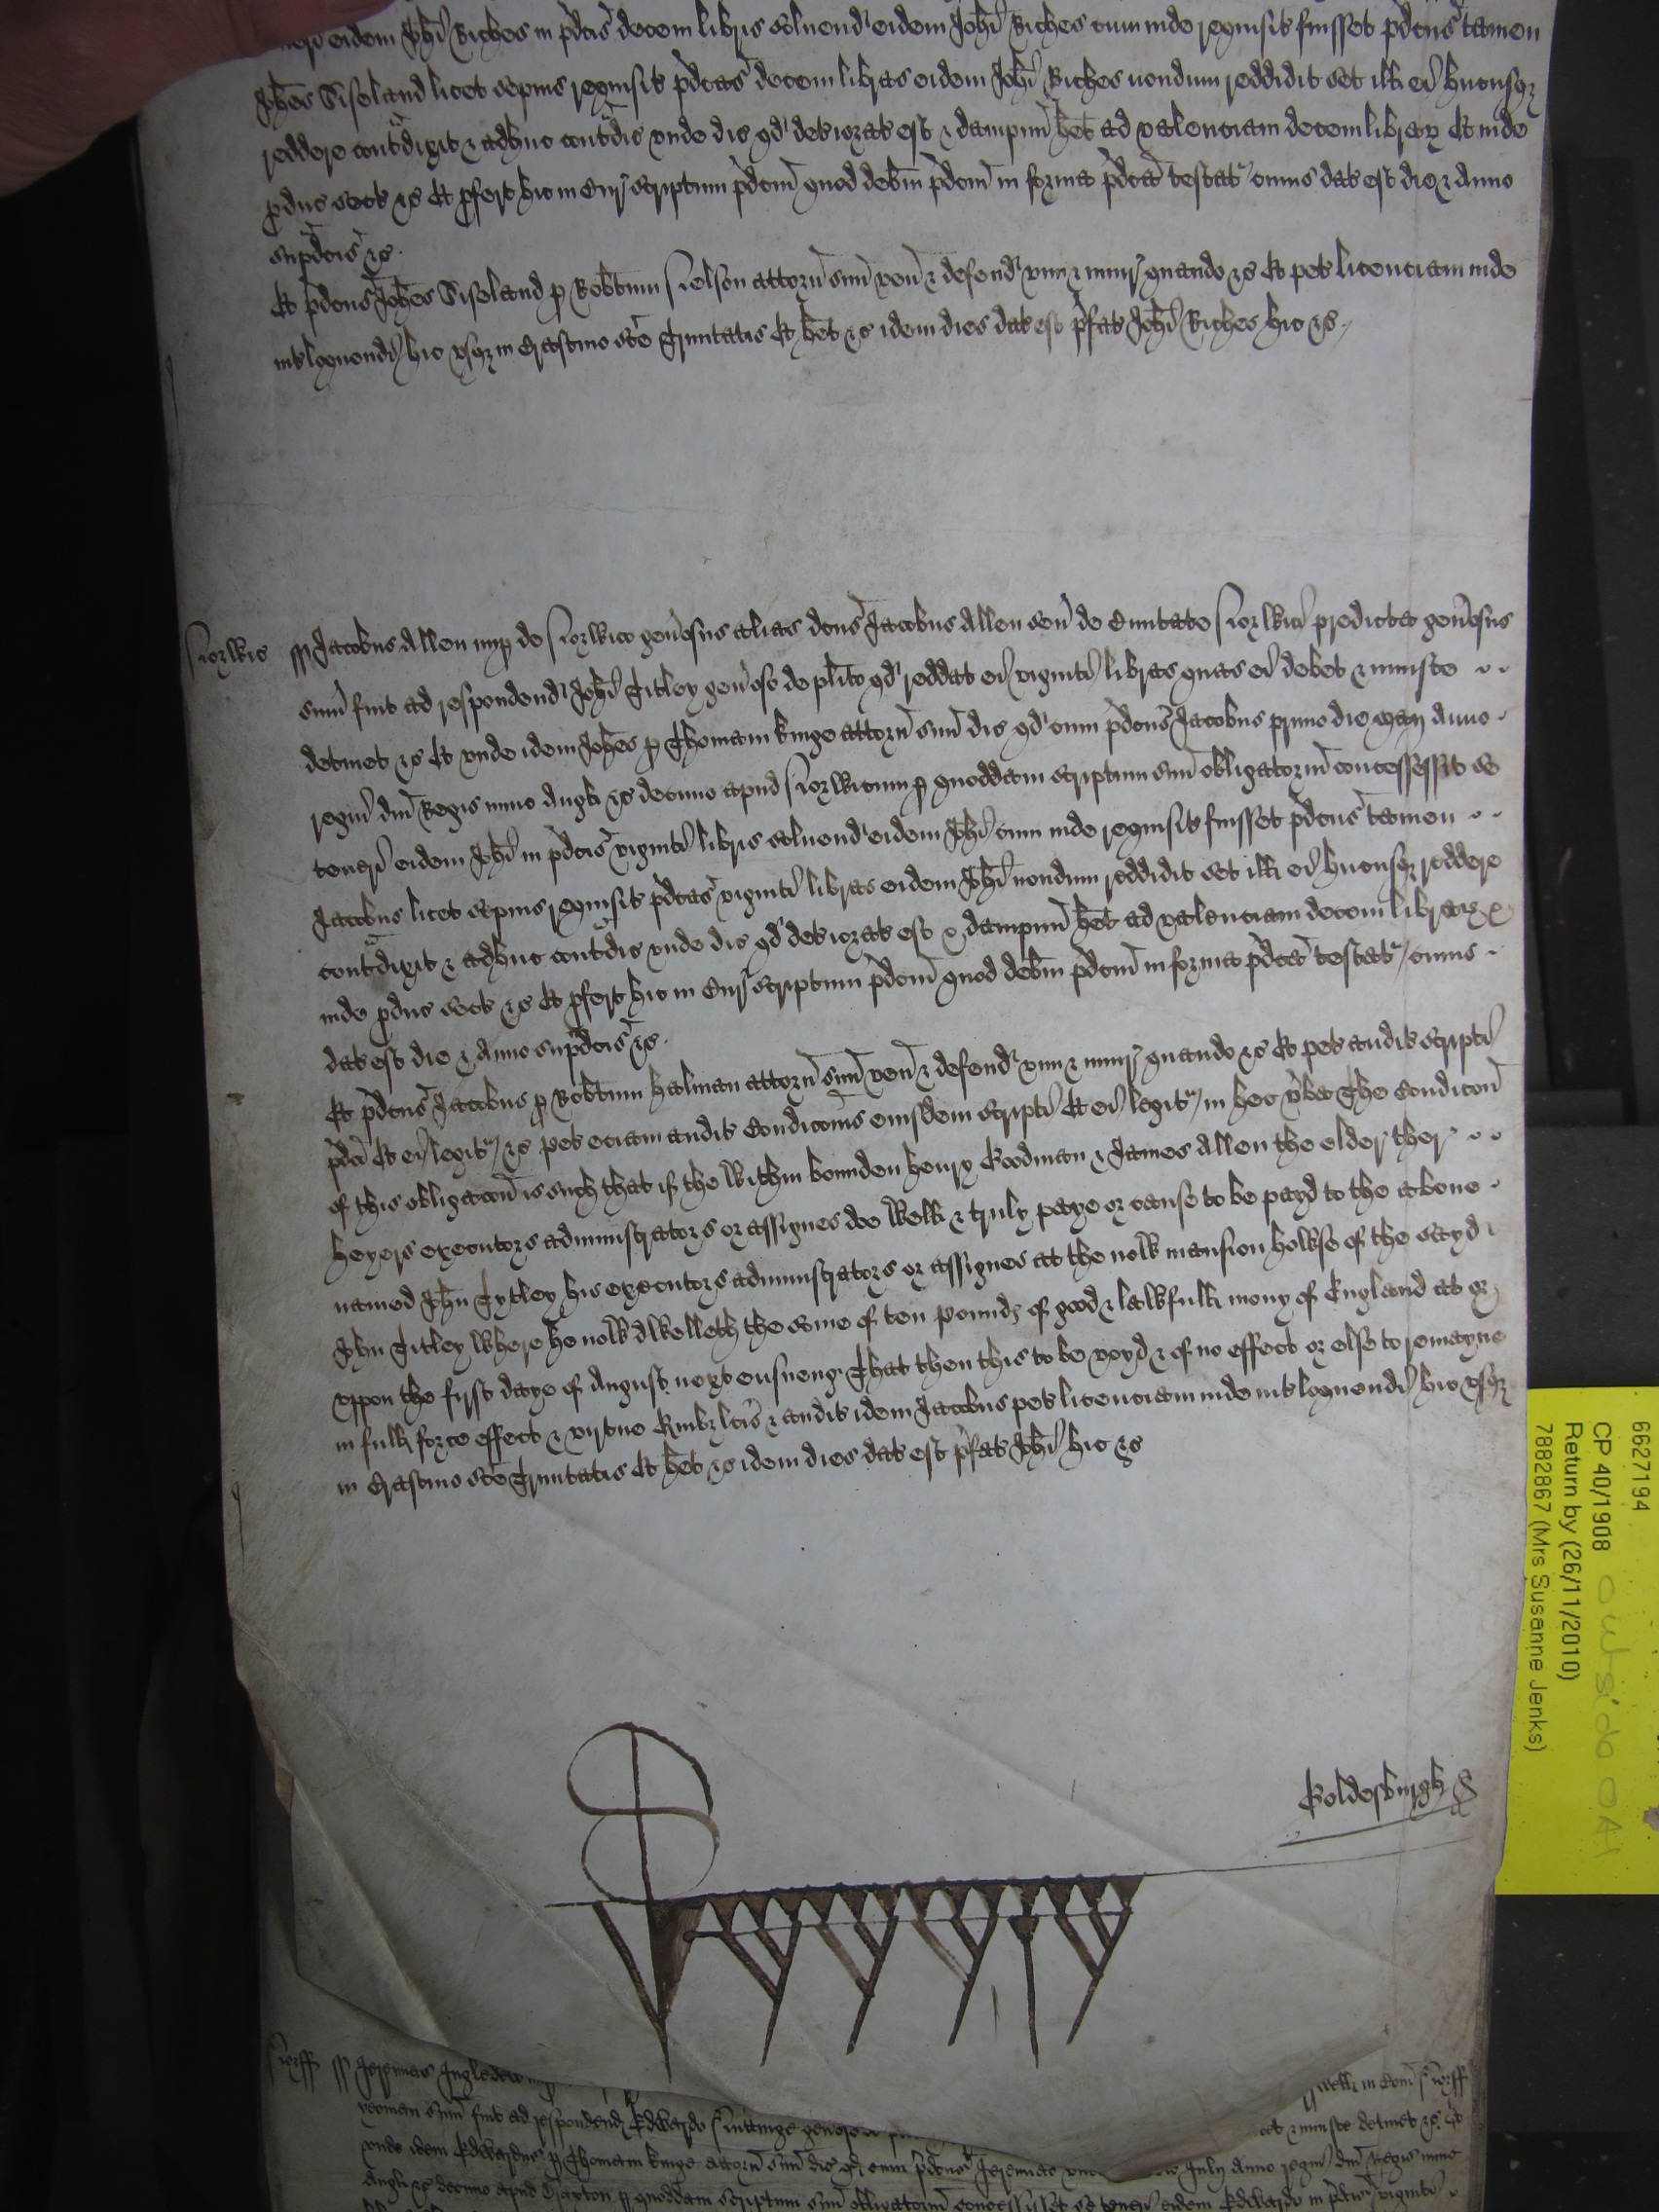 eidem Joħi Riches in p̄dcis decem libris solvend eidem Joħi Riches cum inde requisit fuisset p̄dcus tamen
Joħes Siseland licet sepius requisit p̄dcas decem libras eidem Joħi Riches nondum reddidit set ill ei hucusqȝ
reddere contdixit & adhuc contdic unde dic qd deteriorat est & dampnu het ad valenciam decem librarꝫ Et inde
pduc sect &c Et pfert hic in Cur scriptum p̄dcm quod debm p̄dcm in forma p̄dca testat cuius dat est die & Anno
sup̄dcis &c
Et p̄dcus Joħes Siseland p Robtum Nelson attorn suu ven & defend vim & iniur quando &c Et pet licenciam inde
intloquendi hic usqȝ in Crastino sce Trinitatis Et het &c idem dies dat est p̄fat Joħi Riches hic &c
Norwic ss Jacobus Allen nup de Norwico genosus alias dcus Jacobus Allen sen de Civitate Norwici predicta genosus
sum fuit ad respondend Joħi Titley genoso de plito qd reddat ei viginti libras quas ei debet & iniuste
detinet &c Et unde idem Joħes p Thomam Kinge attorn suu dic qd cum p̄dcus Jacobus primo die Maij Anno
regni dni Regis nunc Angl &c decimo apud Norwicum p quoddam scriptum suu obligatoriu concessessit se
teneri eidem Joħi in p̄dcis viginti libris solvend eidem Joħi cum inde requisit fuisset p̄dcus tamen
Jacobus licet sepius requisit p̄dcas viginti libras eidem Joħi nondum reddidit set ill ei hucusqȝ reddere
contdixit & adhuc contdic unde dic qd deteriorat est & dampnu het ad valenciam decem librarꝫ Et
inde pduc sect &c Et pfert hic in Cur scriptum p̄dcm quod debm p̄dcm in forma p̄dca testat cuius
dat est die & Anno sup̄dcis &c
Et p̄dcus Jacobus p Robtum Halman attorn suu ven & defend vim & iniur quando &c Et pet audit scripti
p̄dci Et ei legit &c pet eciam audit Condicois eiusdem scripti Et ei legit in hec vba The Condicon
of this obligacon is such that if the within bounden Henry Goodman & James Allen the elder ther
heyers executors administrators or assignes doe well & truly paye or cause to be payd to the above
named John Tytley his executors administrators or assignes at the now mansion howse of the sayd
John Titley where he now dwelleth the some of ten pounds of good & lawfull mony of England at or
uppon the first daye of August next ensueng That then this to be voyd & of no effect or else to remayne
in full force effect & virtue Quibȝ lcis & audit idem Jacobus pet licenciam inde intloquendi hic usqȝ
in Crastino sce Trinitatis Et het &c idem dies dat est p̄fat Joħi hic &c
Goldesburgh
Norff ss Jeremias
yeoman sum fuit ad respondend Edwardo
et iniuste detinet &c Et
unde idem Edwardus p Thomam Kinge attorn suu dic qd cum p̄dcus Jeremias
July Anno regni dni Regis nunc
Angl &c decimo apud
p quoddam scriptum suu obligatoriu concessisset se teneri eidem Edwardo in p̄dcis viginti
6627194
CP 40/1908 outside OA
Return by (26/11/2010)
7882867 (Mrs Susanne Jenks)